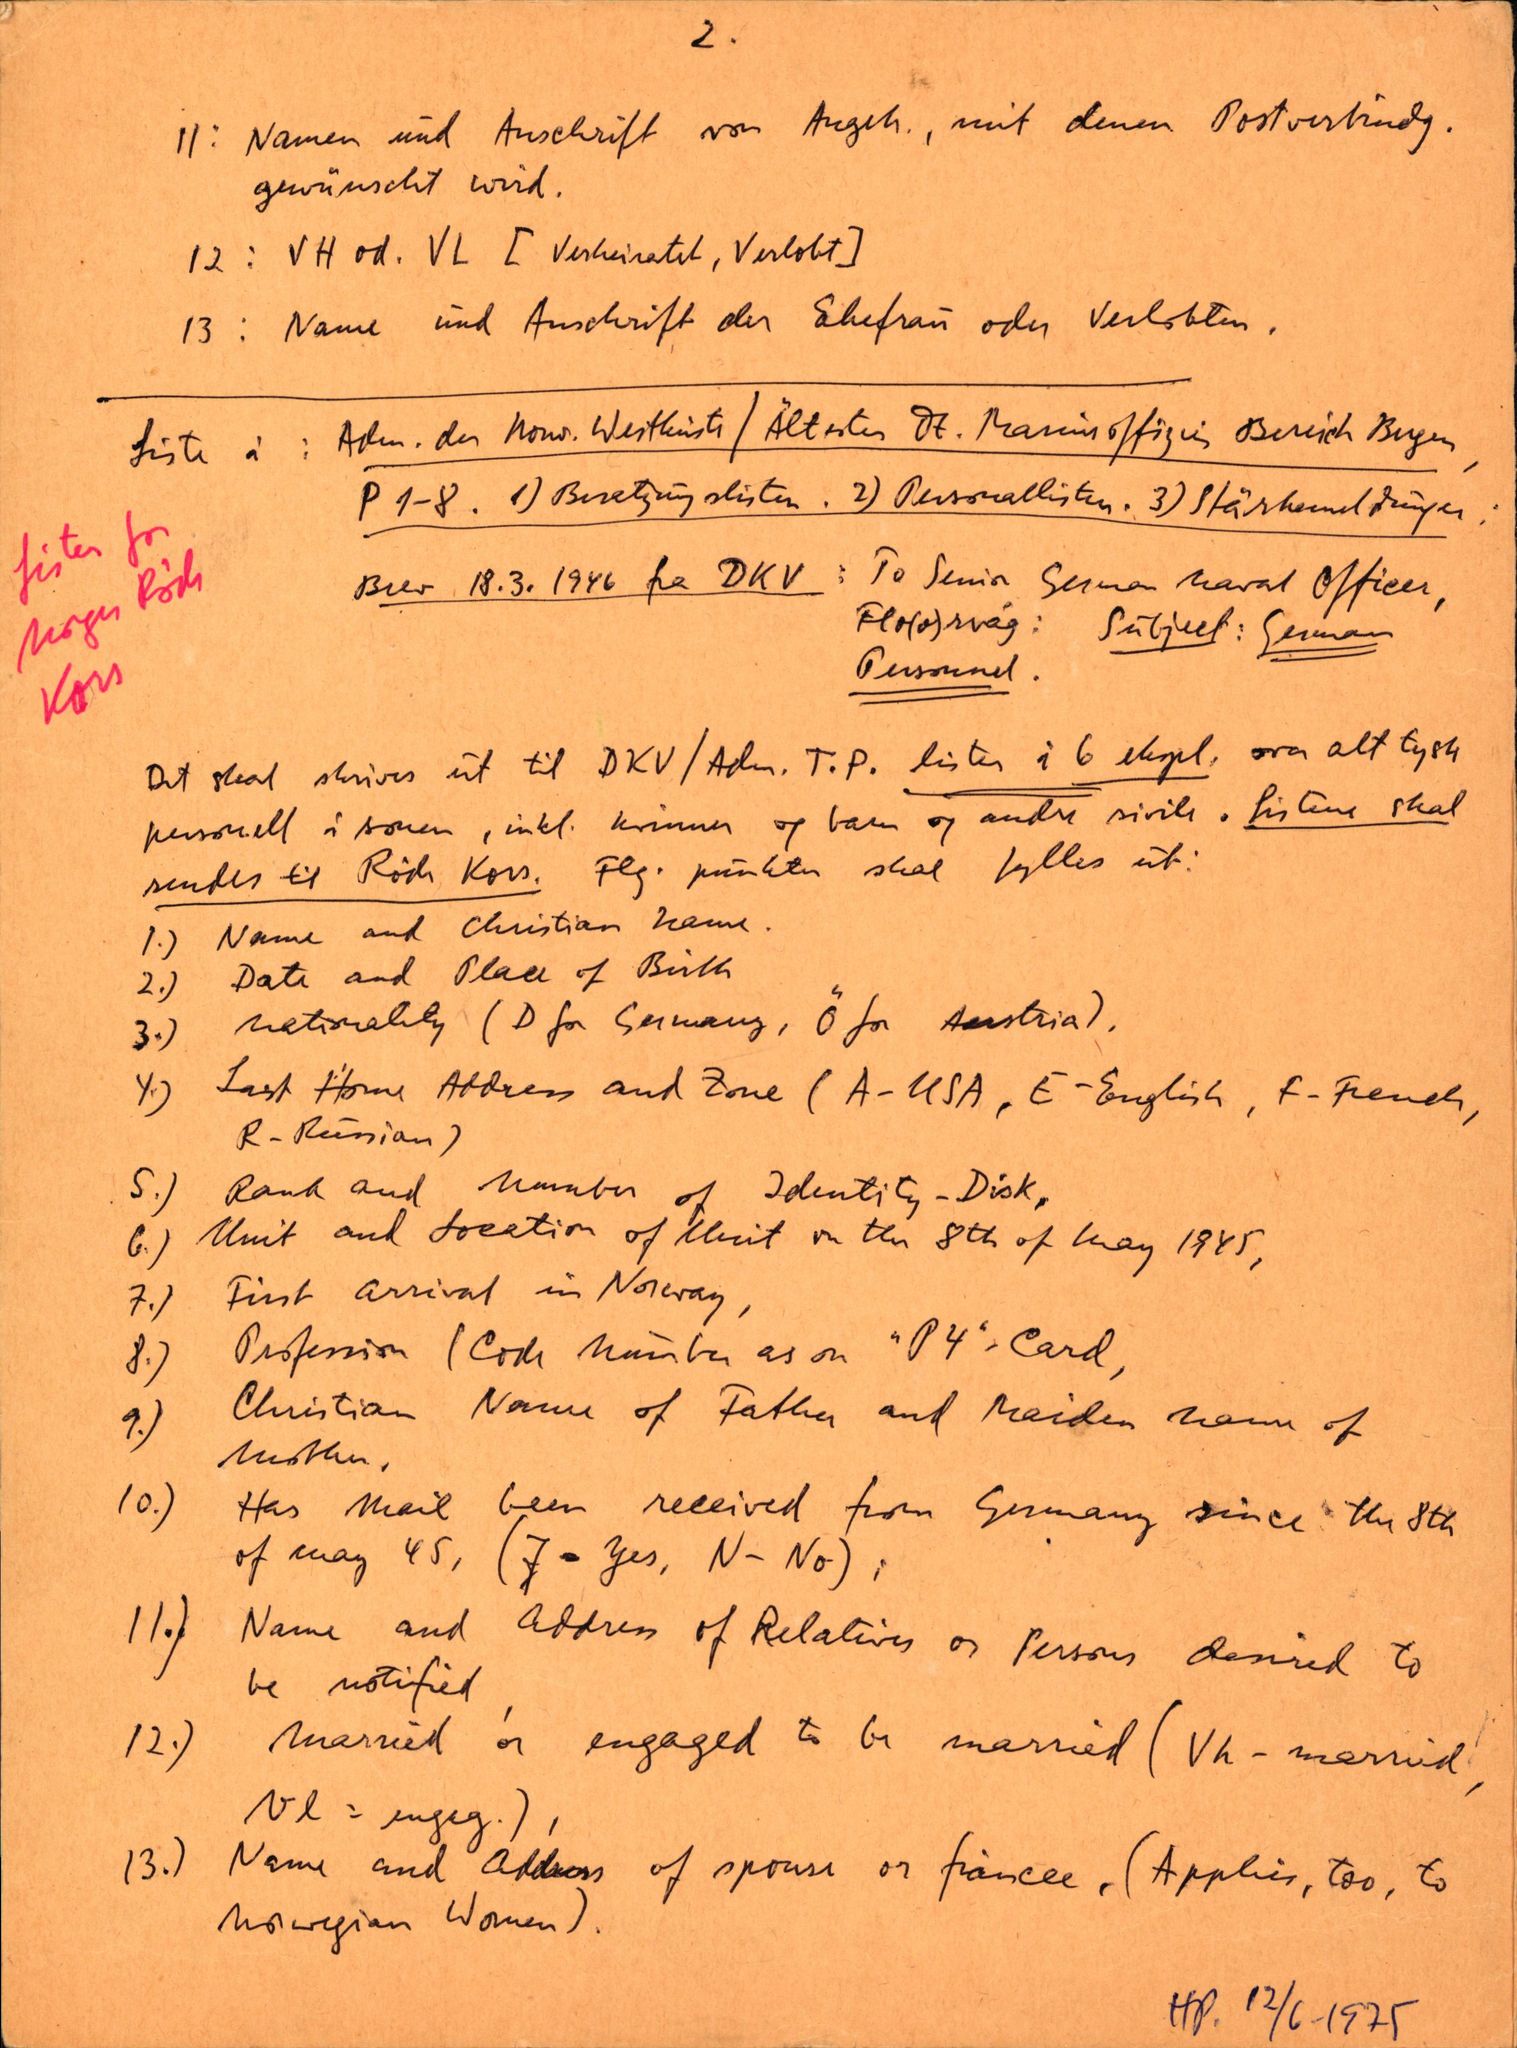 2.
11: Namen und Anschrift von Angeh., mit denen Postverbindg.
gewünscht wird.
12: VH od. VL [Verheiratet, Verlobt]
13: Name und Anschrift der Ehefrau oder Verlobten.
Liste i: Adm. der Norw. Westküste/Ältester Dt. Marineoffizier Bereich Bergen,
P 1-8. 1) Besetzungslisten. 2) Personallisten. 3) Stärkemeldungen:
Lister for
Norges Röde
Kors
Brev 18.3.1946 fra DKV: To Senior German Naval Officer,
Flo(o)rvåg: Subject: German
Personnel.
Det skal skrives ut til DKV/Adm. T.P. lister i 6 ekspl. over alt tysk
personell i sonen, inkl. kvinner og barn og andre sivile. Listene skal
sendes til Röde Kors. Flg. punkter skal fylles ut:
1.) Name and Christian name.
2.) Date and Place of Birth
3.) Nationality (D for Germany, Ö for Austria).
4.) Last Home Address and Zone (A-USA, E-English, F-French,
R-Russian)
5.) Rank and Number of Identity-Disk,
6.) Unit and Location of Unit on the 8th of May 1945,
7.) First arrival in Norway,
8.) Profession (Code Number as on "P4"-Card,
9.) Christian Name of Father and Maiden name of
Mother,
10.) Has Mail been received from Germany since the 8th
of may 45, (J - Yes, N - No),
11.) Name and Address of Relatives or Persons desired to
be notified,
12.) Married or engaged to be married (Vh - married,
Vl = engag.),
13.) Name and Address of spouse or fiancee, (Applies, too, to
Norwegian Women).
HP. 12/6-1975